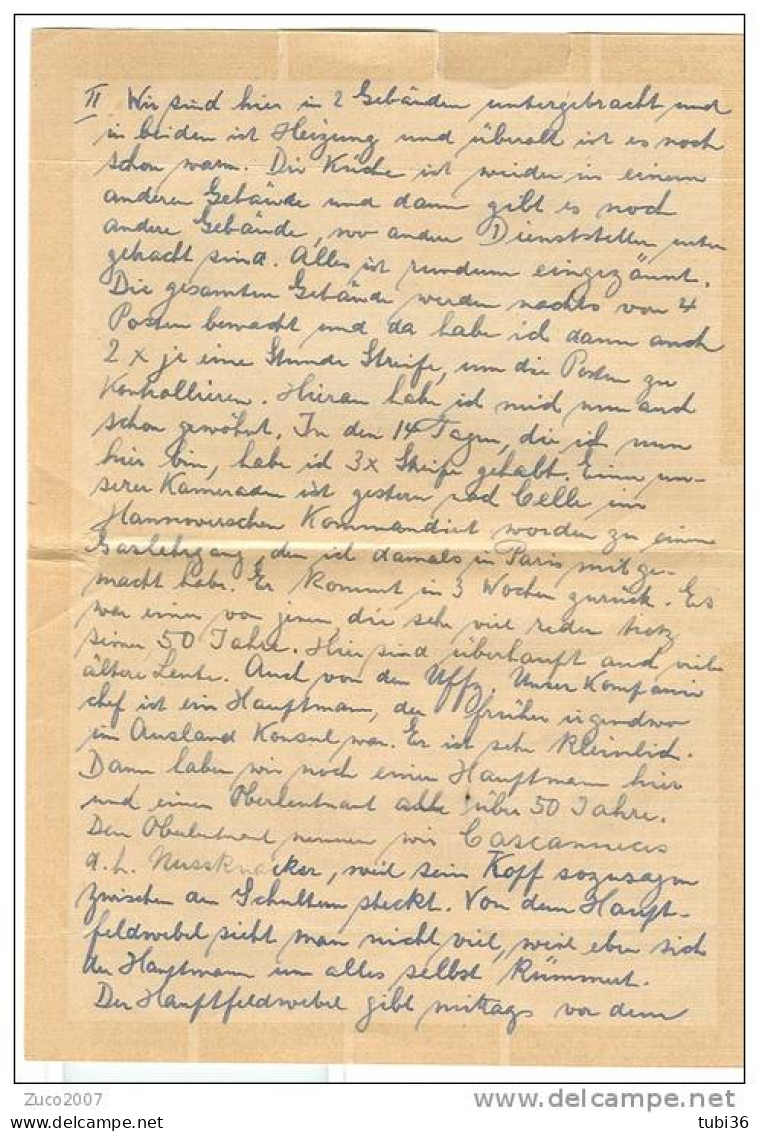 II Wir sind hier in 2 Gebäuden untergebracht und
in beiden ist Heizung und überall ist es noch
schön warm. Die Küche ist wieder in einem
anderen Gebäude und dann gibt es noch
andere Gebäude, wo andere Dienststellen unter
gebracht sind. Alles ist rundum eingezäunt.
Die gesamten Gebäude werden nachts von 4
Posten bewacht und da habe ich dann auch
2 x je eine Stunde Streife, um die Posten zu
Kontrollieren. Hieran habe ich mich nun auch
schon gewöhnt. In den 14 Tagen, die ich nun
hier bin, habe ich 3x Streife gehabt. Einer un-
serer Kameraden ist gestern nach Celle im
Hannoverschen Kommandiert worden zu einem
Gaslehrgang, den ich damals in Paris mitge-
macht habe. Er kommt in 3 Wochen zurück. Es
war einer von jenen die sehr viel reden trotz
seiner 50 Jahre. Hier sind überhaupt auch viele
ältere Leute. Auch von den Uffz. Unser Kompanie
chef ist ein Hauptmann, der früher irgendwo
im Ausland Konsul war. Er ist sehr kleinlich.
Dann haben wir noch einen Hauptmann hier
und einen Oberleutnant alle über 50 Jahre.
Den Oberleutnant nennen wir Cascanueces
d.h. Nussknacker, weil sein Kopf sozusagen
zwischen den Schultern steckt. Von dem Haupt-
feldwebel sieht man nicht viel, weil eben sich
der Hauptmann um alles selbst Kümmert.
Der Hauptfeldwebel gibt mittags vor dem
Zuco2007
www.delcampe.net
tubi36